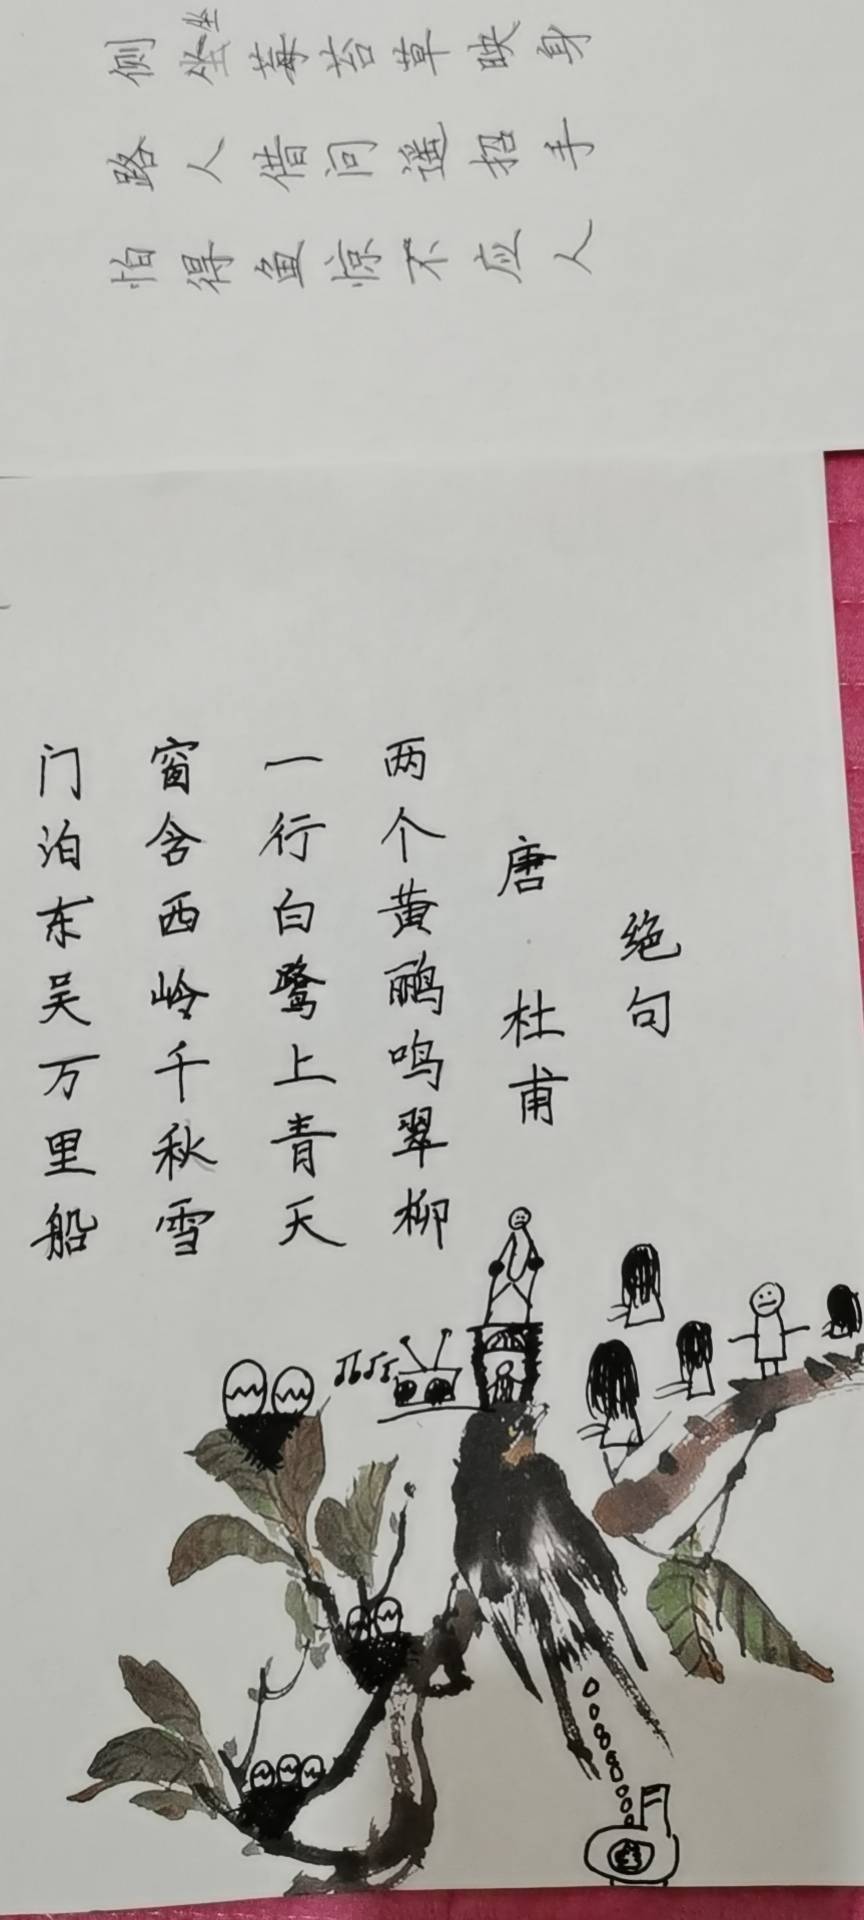 侧坐莓苔草映身
路人借问遥招手
怕得鱼惊不应人
绝句
唐 杜甫
两个黄鹂鸣翠柳
一行白鹭上青天
窗含西岭千秋雪
门泊东吴万里船